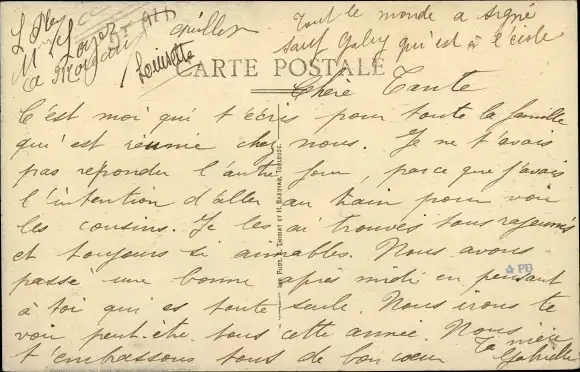 Tout le monde a signé
sauf Gaby qu'est à l'école
Louisette
CARTE POSTALE
Chère Tante
C'est moi qui t'écris pour toute la famille
qu'est réunie chez nous. Je ne t'avais
pas répondu l'autre jour, parce que j'avais
l'intention d'aller au train pour voir
les cousins. Je les ai trouvés tous rajeunis
et toujours si aimables. Nous avons
passé une bonne après midi en pensant
à toi qui es toute seule. Nous irons te
voir peut-être tous cette année. Nous
t'embrassons tous de bon cœur
Ta nièce
Gabrielle
TOULOUSE
PB